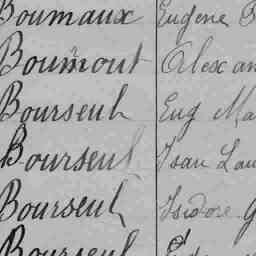 Boumaux Eugène
Boumont Alexan
Bourseul Eug Ma
Bourseul Jean Lau
Bourseul Isidore G
Bourseul